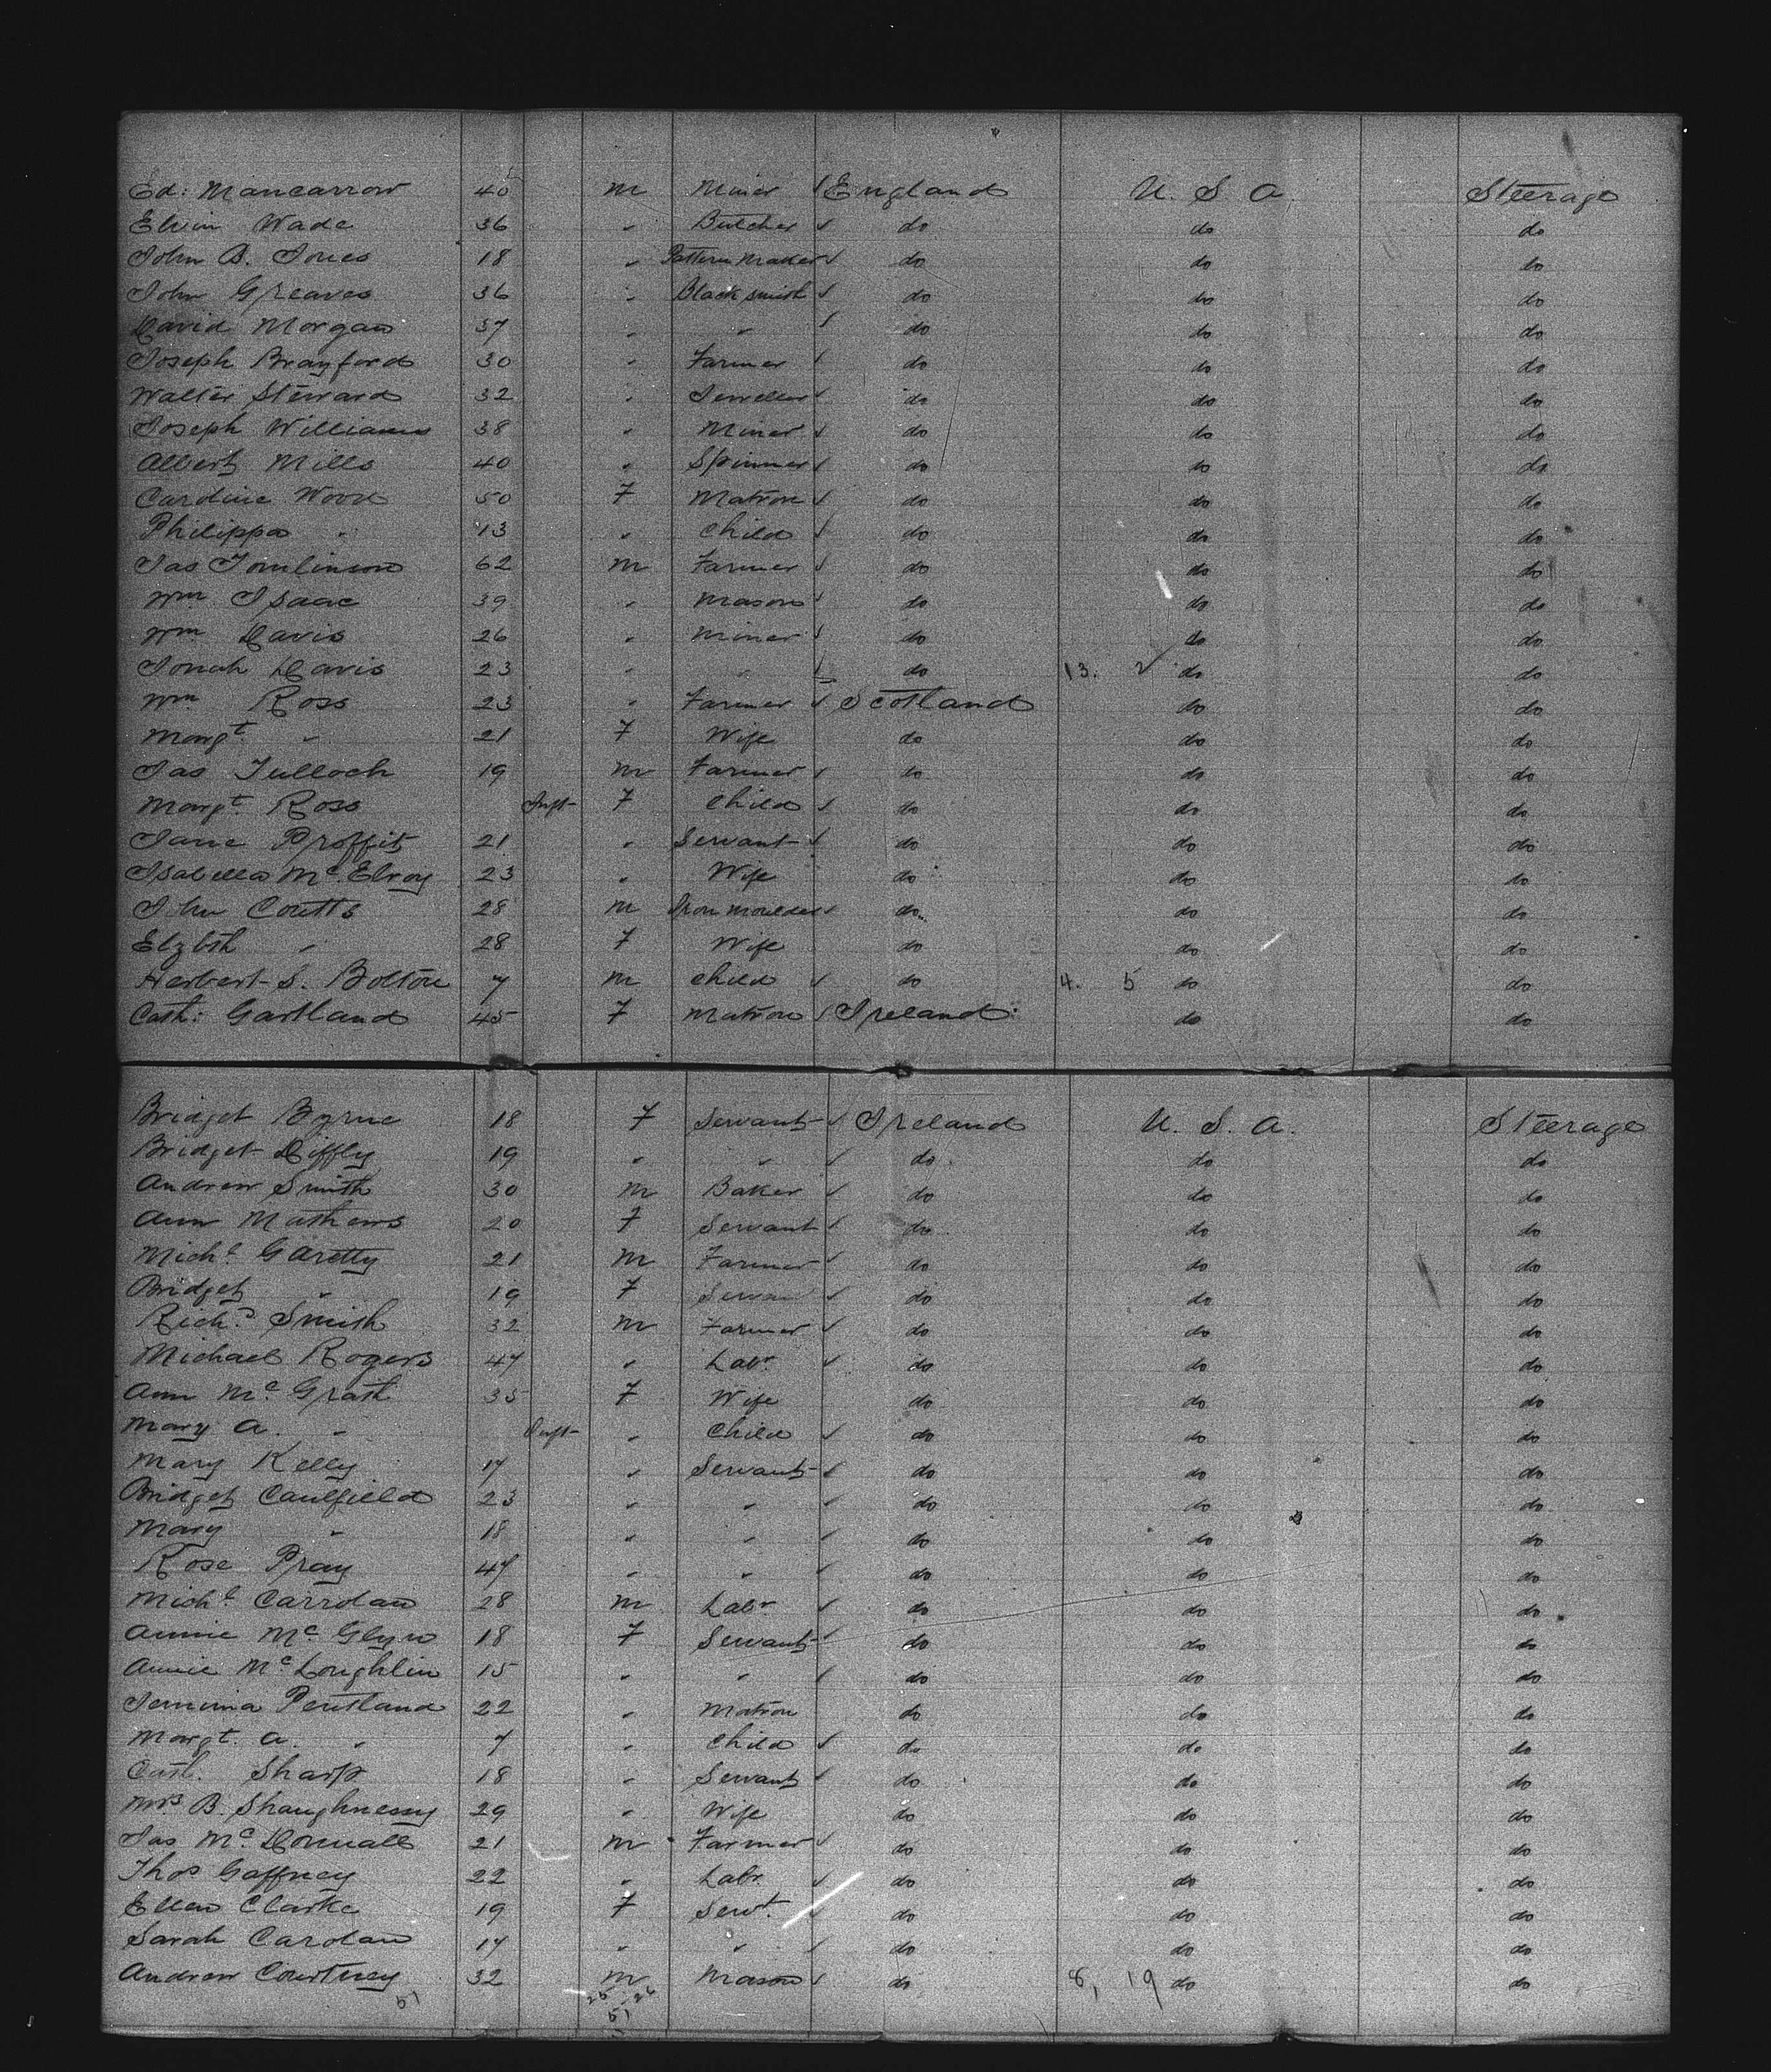 Ed: Mancarrow 40 m Miner ✓ England U. S. A. Steerage
Elvin Wade 36 " Butcher ✓ do do do
John B. Jones 18 " Pattern Maker ✓ do do do
John Greaves 36 " Black smith ✓ do do do
David Morgan 37 " " ✓ do do do
Joseph Brayford 30 " Farmer ✓ do do do
Walter Steward 32 " Jeweller ✓ do do do
Joseph Williams 38 " Miner ✓ do do do
Albert Mills 40 " Spinner ✓ do do do
Caroline Wood 50 F Matron ✓ do do do
Philippa " 13 " Child ✓ do do do
Jas Tomlinson 62 m Farmer ✓ do do do
Wm Isaac 39 " Mason ✓ do do do
Wm Davis 26 " Miner ✓ do do do
Jonah Davis 23 " " ✓ do 13. 2 do do
Wm Ross 23 " Farmer ✓ Scotland do do
Margt " 21 F Wife do do do
Jas Tulloch 19 m Farmer ✓ do do do
Margt Ross Inft F Child ✓ do do do
Jane Proffit 21 " Servant ✓ do do do
Isabella Mc Elroy 23 " Wife do do do
John Coutts 28 m Iron Moulder ✓ do do do
Elzbth " 28 F Wife do do do
Herbert S. Bolton 7 m Child ✓ do 4. 5 do do
Cath: Gartland 45 F Matron ✓ Ireland: do do
Bridget Byrne 18 F Servant ✓ Ireland U. S. A. Steerage
Bridget Diffly 19 " " ✓ do do do
Andrew Smith 30 m Baker ✓ do do do
Ann Mathews 20 F Servant ✓ do do do
Michl Garetty 21 m Farmer ✓ do do do
Bridget " 19 F Servan ✓ do do do
Richd Smith 32 m Farmer ✓ do do do
Michael Rogers 47 " Labr ✓ do do do
Ann Mc Grath 35 F Wife do do do
Mary A. " Inft " Child ✓ do do do
Mary Kelly 17 " Servant ✓ do do do
Bridget Caulfield 23 " " ✓ do do do
Mary " 18 " " ✓ do do do
Rose Pray 47 " " ✓ do do do
Michl Carrolan 28 m Labr ✓ do do do
Annie Mc Glyn 18 F Servant ✓ do do do
Annie Mc Loughlin 15 " " ✓ do do do
Jemima Pentland 22 " Matron do do do
Margt. A. " 7 " Child ✓ do do do
Cath. Sharp 18 " Servant ✓ do do do
Mrs B. Shaughnessy 29 " Wife do do do
Jas Mc Donnall 21 m Farmer ✓ do do do
Thos Gaffney 22 " Labr ✓ do do do
Ellen Clarke 19 F Servt. ✓ do do do
Sarah Carolan 17 " " ✓ do do do
Andrew Courtney 32 m Mason ✓ do 8, 19 do do
51 25 26
51